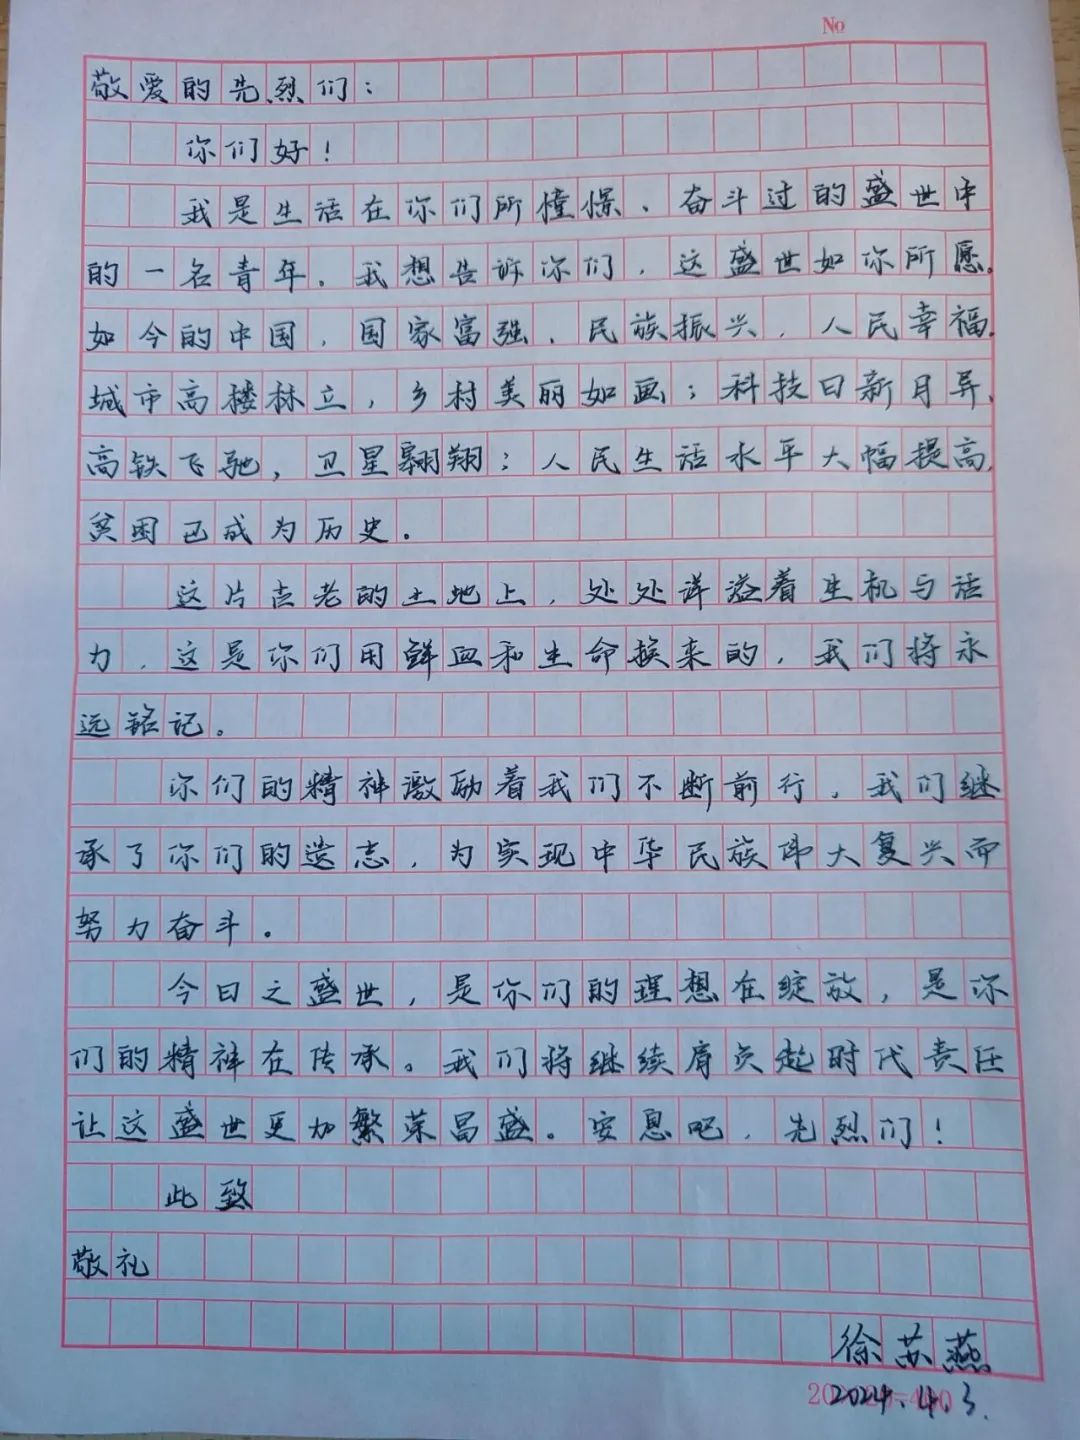 No
敬爱的先烈们：
你们好！
我是生活在你们所憧憬、奋斗过的盛世中
的一名青年。我想告诉你们，这盛世如你所愿.
如今的中国，国家富强、民族振兴，人民幸福.
城市高楼林立，乡村美丽如画；科技日新月异.
高铁飞驰，卫星翱翔；人民生活水平大幅提高.
贫困已成为历史。
这片古老的土地上，处处洋溢着生机与活
力，这是你们用鲜血和生命换来的，我们将永
远铭记。
你们的精神激励着我们不断前行，我们继
承了你们的遗志，为实现中华民族伟大复兴而
努力奋斗。
今日之盛世，是你们的理想在绽放，是你
们的精神在传承。我们将继续肩负起时代责任
让这盛世更加繁荣昌盛。安息吧，先烈们！
此致
敬礼
徐苏燕
2024.4.3.